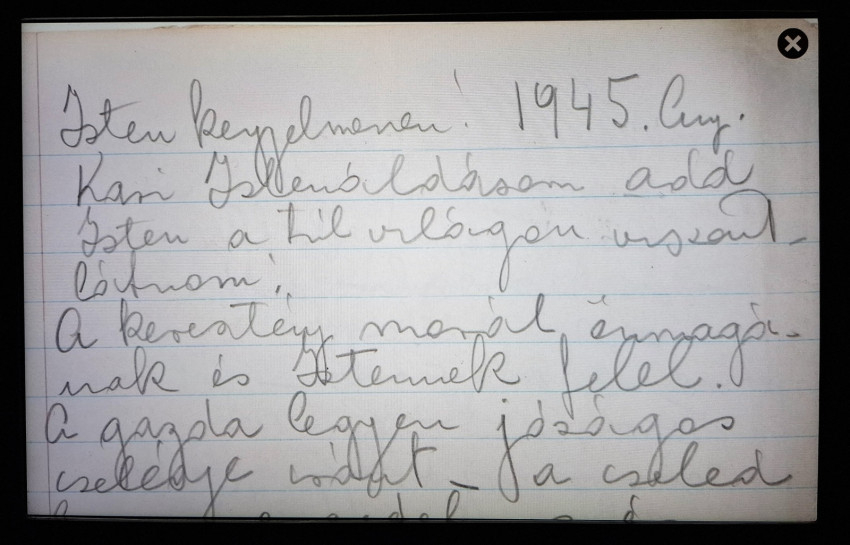 Isten kegyelmenen! 1945. Aug.
Kari Istenáldásom add
Isten a túlvilágon viszont-
látnom!
A keresztény morál önmagá-
nak és Istennek felel.
A gazda legyen jóságos
cselédje iránt – a cseléd